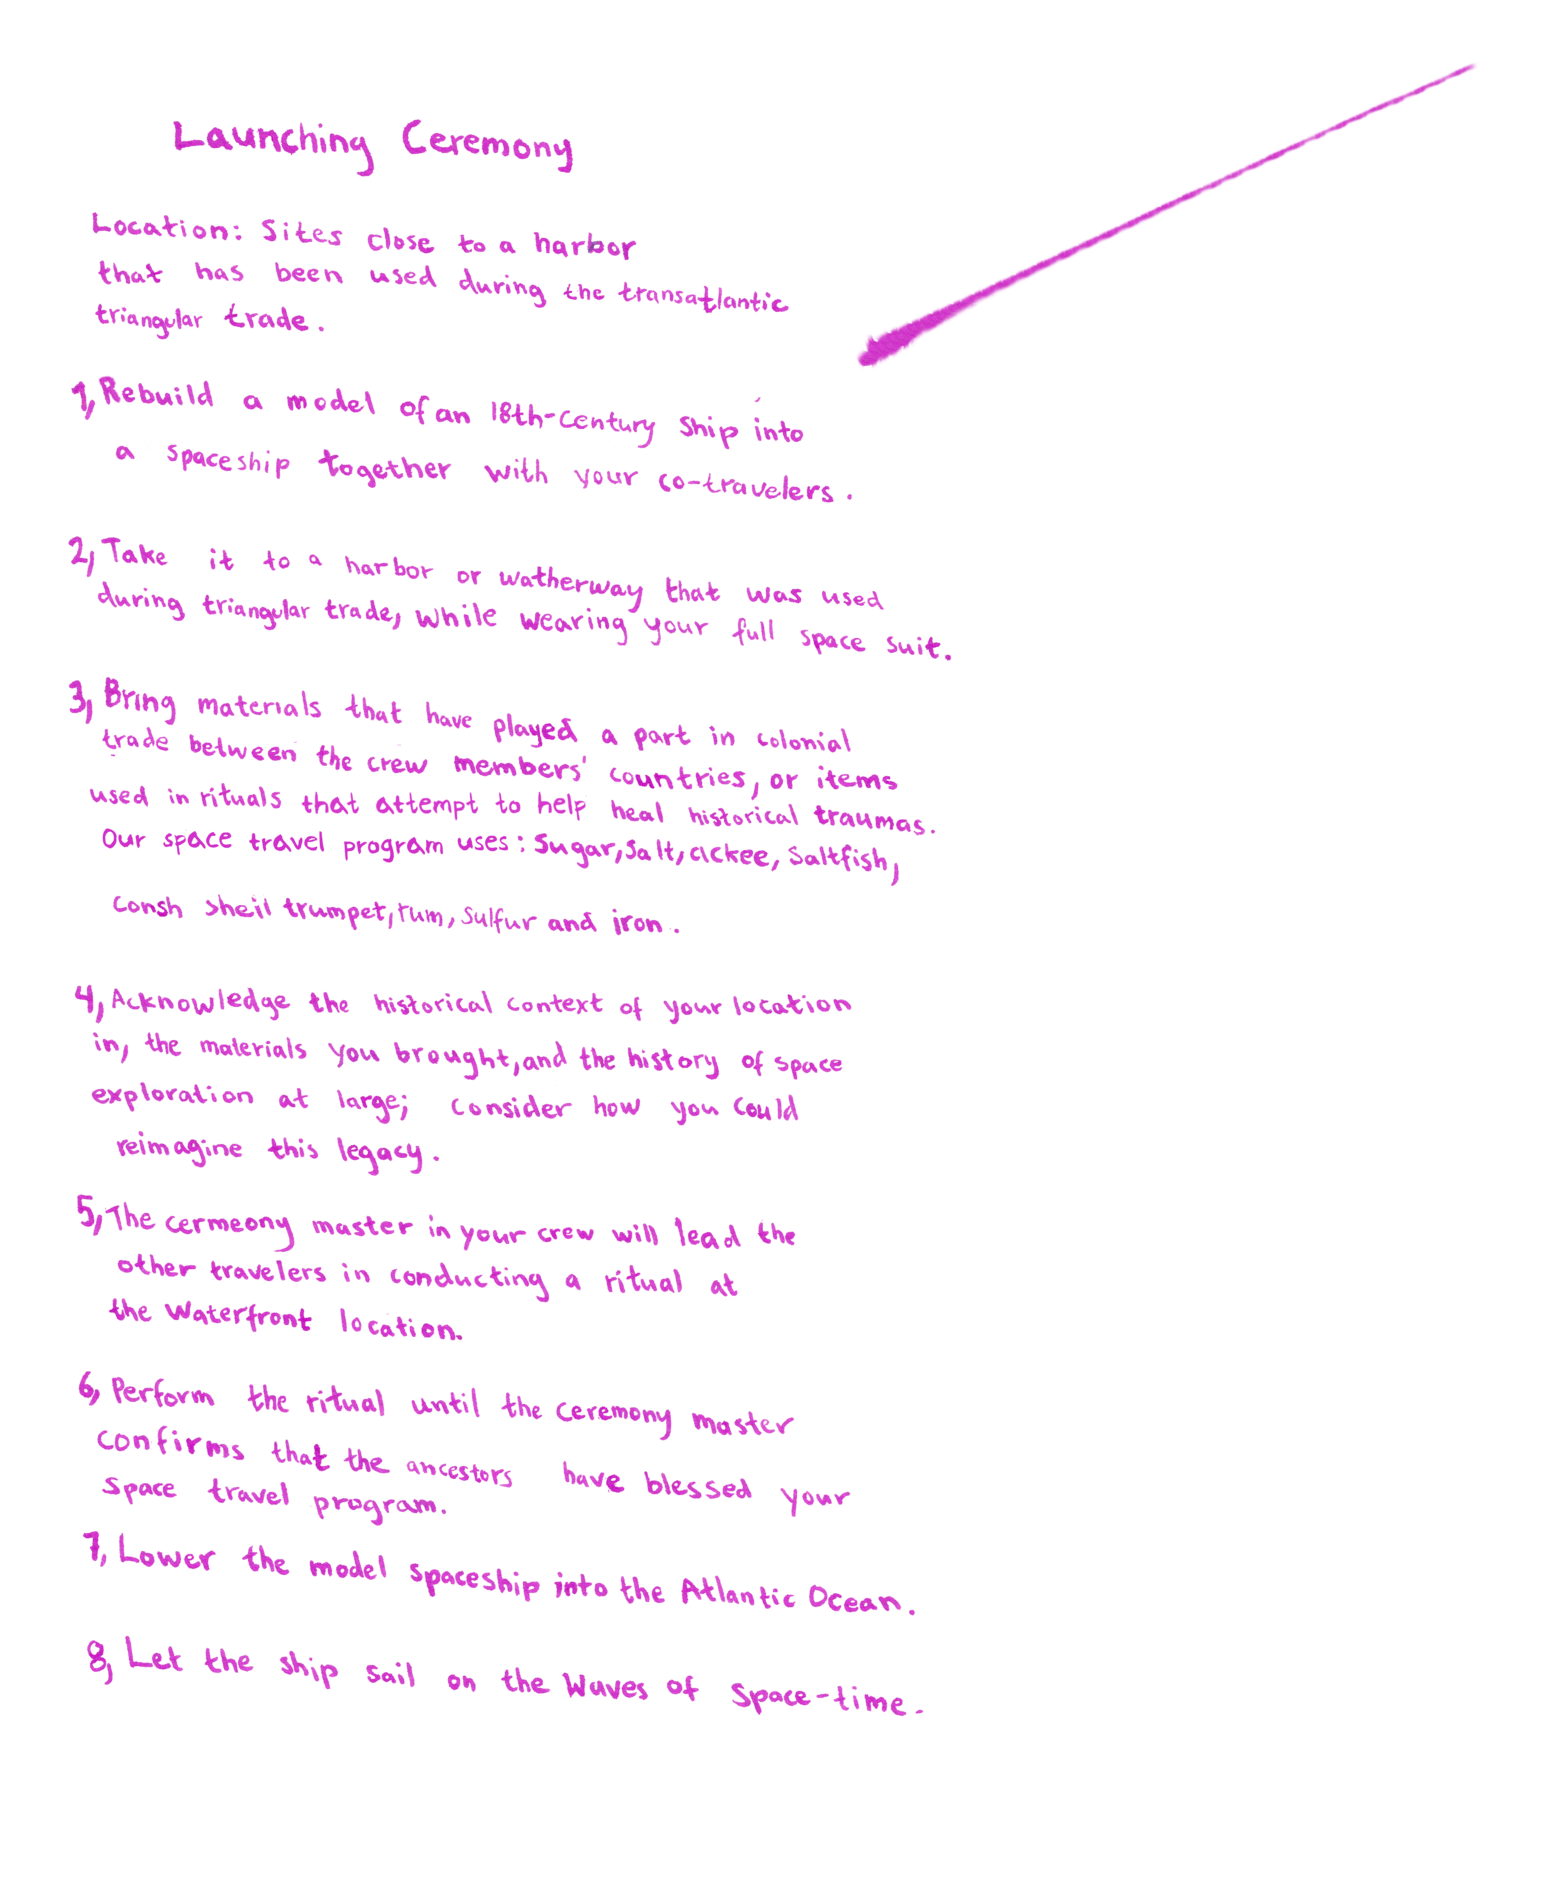 Launching Ceremony
Location: Sites close to a harbor
that has been used during the transatlantic
triangular trade.
1, Rebuild a model of an 18th-century ship into
a spaceship together with your co-travelers.
2, Take it to a harbor or watherway that was used
during triangular trade, while wearing your full space suit.
3, Bring materials that have played a part in colonial
trade between the crew members' countries, or items
used in rituals that attempt to help heal historical traumas.
Our space travel program uses: Sugar, salt, ackee, saltfish,
consh shell trumpet, rum, sulfur and iron.
4, Acknowledge the historical context of your location
in, the materials you brought, and the history of space
exploration at large; consider how you could
reimagine this legacy.
5, The cermeony master in your crew will lead the
other travelers in conducting a ritual at
the Waterfront location.
6, Perform the ritual until the ceremony master
confirms that the ancestors have blessed your
space travel program.
7, Lower the model spaceship into the Atlantic Ocean.
8, Let the ship sail on the waves of space-time.